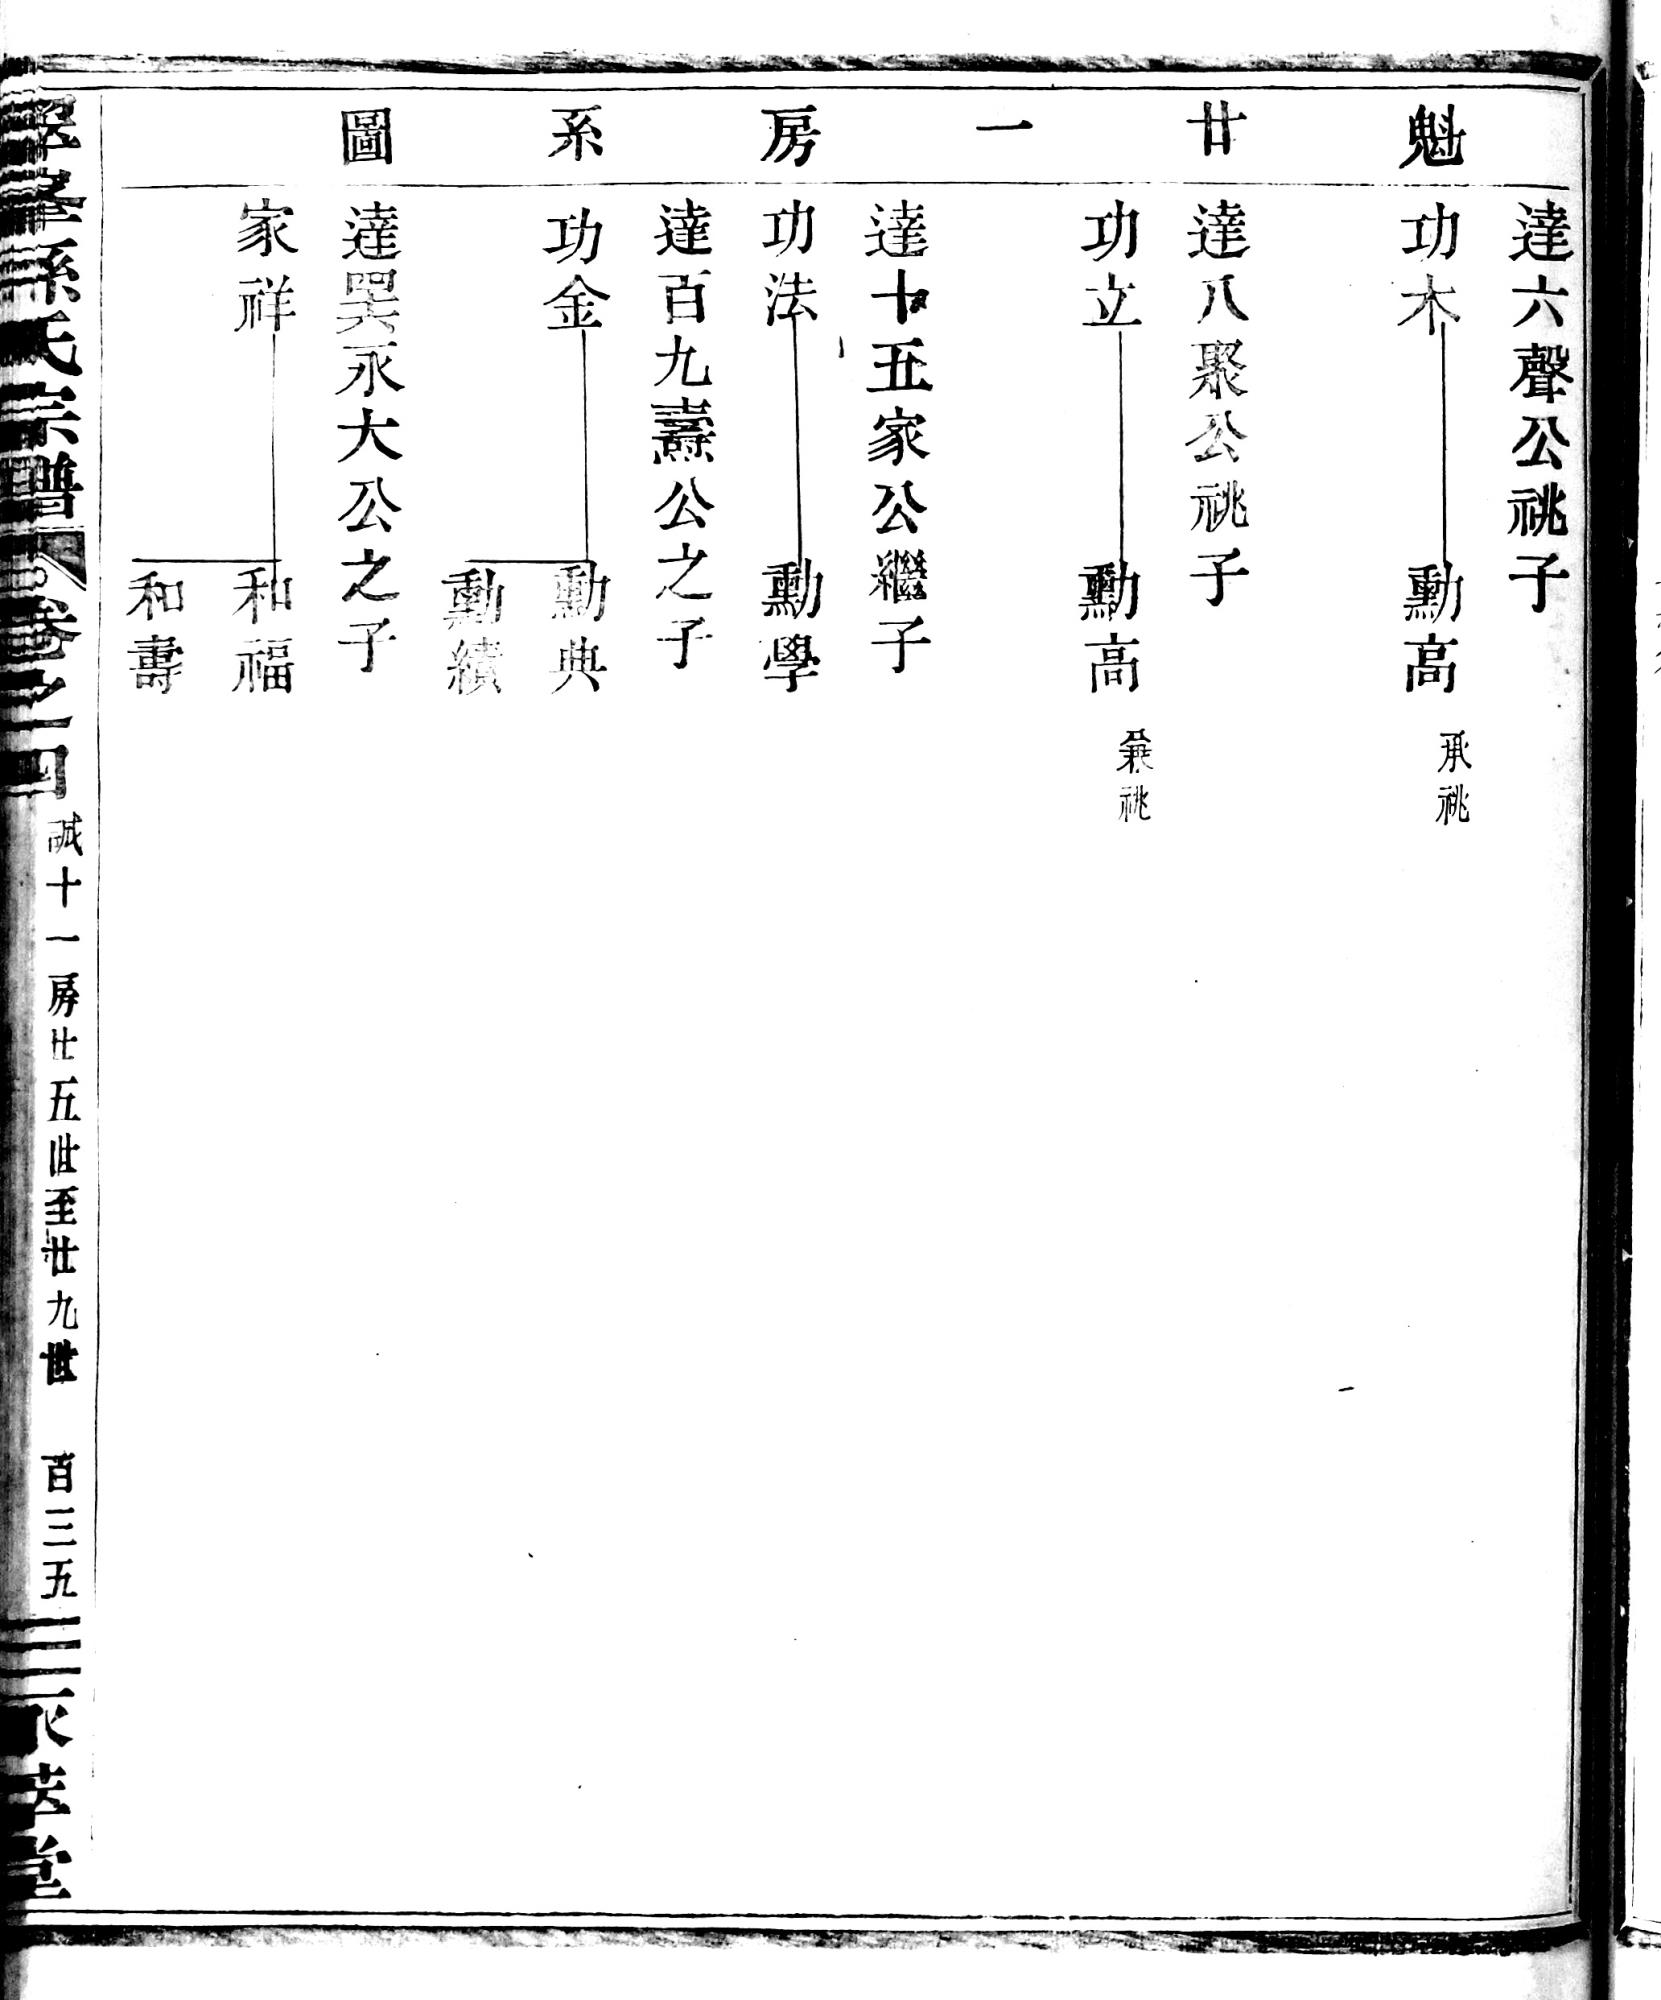 魁廿一房系圖
達六聲公祧子
功木
勳高
承祧
達八聚公祧子
功立
勳高
兼祧
達十五家公繼子
功法
勳學
達百九壽公之子
功金
勳典
勳績
達巽永大公之子
家祥
和福
和壽
孫氏宗譜
卷之四
誠十一房廿五世至廿九世
百三五
堂